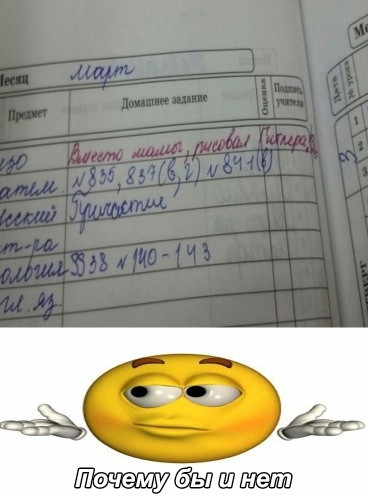 Месяц Март
Предмет Домашнее задание Оценка Подпись учителя
изо Вместо мамы, рисовал Гитлера.
матем. №835, 837(в,г) №841(в)
русский Причастие
лит-ра
биология §§38 №140-143
англ. яз.
Дата
№ урока
1
2
3
3
Почему бы и нет